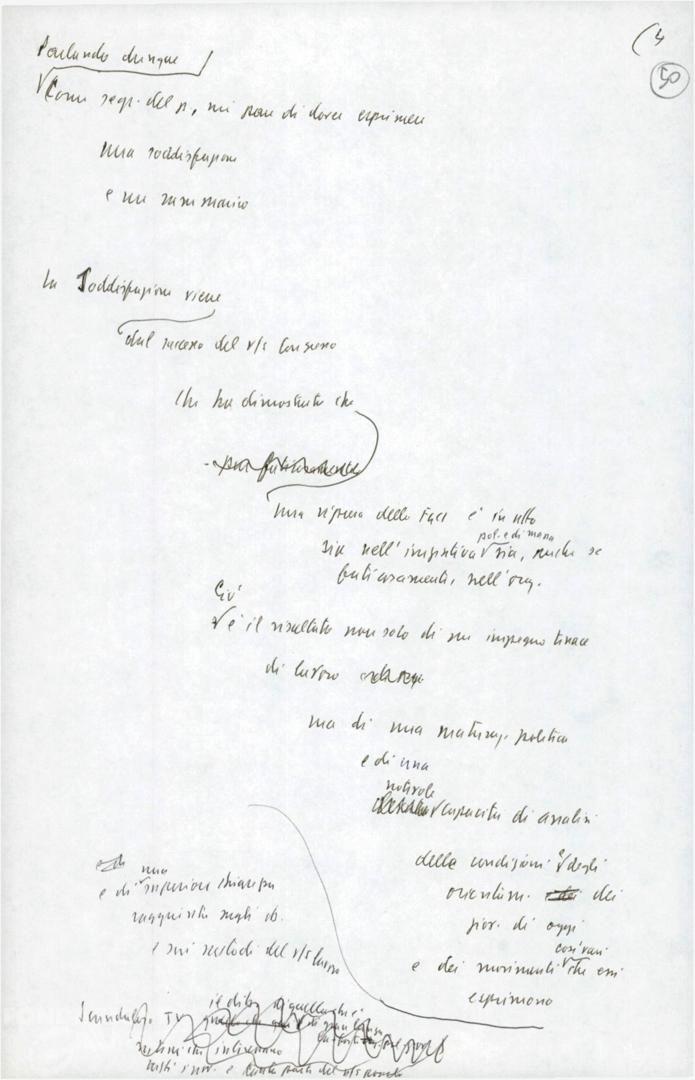 (4
50
Parlando dunque
Come segr. del p, mi pare di dover esprimere
una soddisfazione
e un rammarico
La Soddisfazione viene
dal successo del v/s Congresso
che ha dimostrato che
una ripresa della FGCI è in atto
pol. e di massa
sia nell'iniziativa sia, anche se
faticosamente, nell'org.
Ciò
è il risultato non solo di un impegno tenace
di lavoro
ma di una maturaz. politica
e di una
notevole
capacità di analisi
delle condizioni e degli
orientam. dei
giov. di oggi
così vari
e dei movimenti che essi
esprimono
una
e di superiore chiarezza
raggiunta sugli ob.
e sui metodi del v/s lavoro